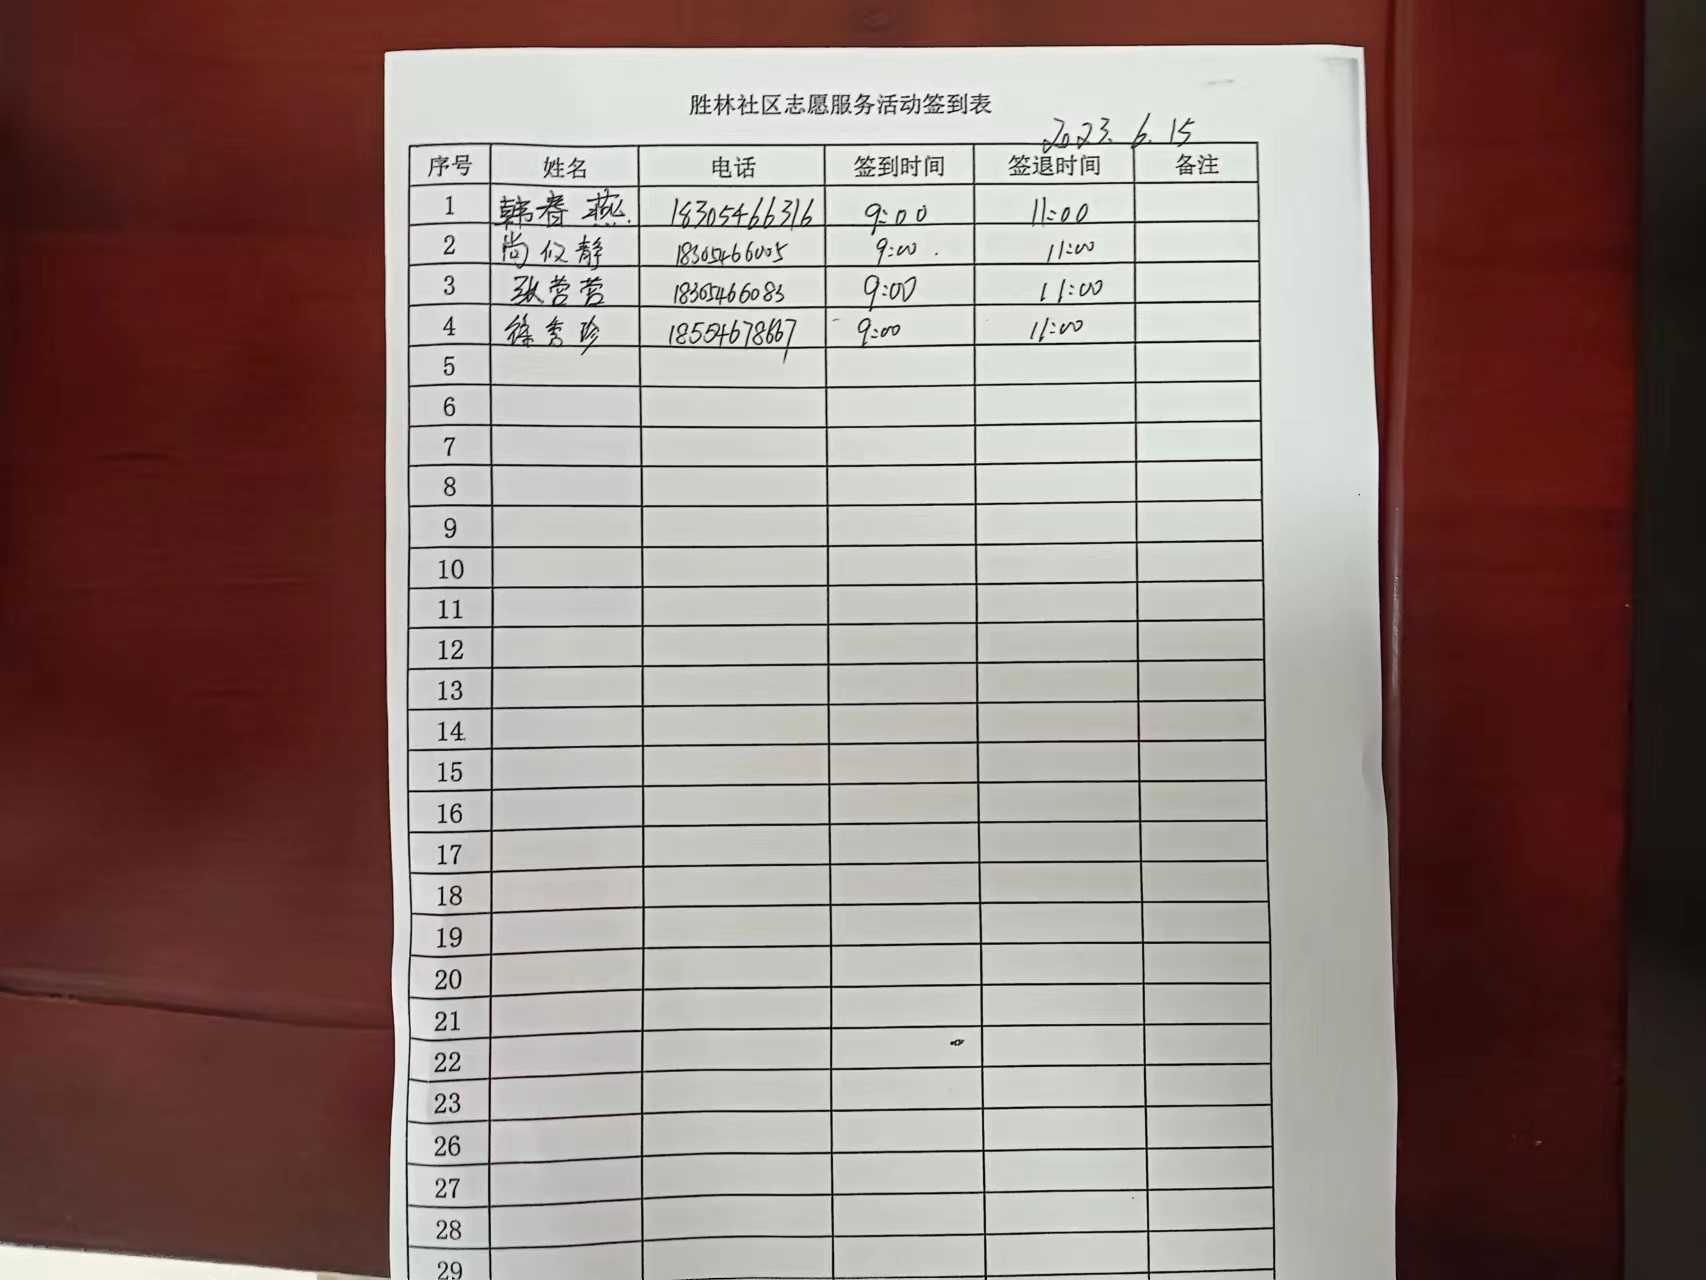 胜林社区志愿服务活动签到表
2023.6.15
序号 姓名 电话 签到时间 签退时间 备注
1 韩春燕 18305466316 9:00 11:00
2 尚仪静 18305466005 9:00 11:00
3 张营营 18305466083 9:00 11:00
4 徐秀珍 18554678667 9:00 11:00
5
6
7
8
9
10
11
12
13
14
15
16
17
18
19
20
21
22
23
26
27
28
29